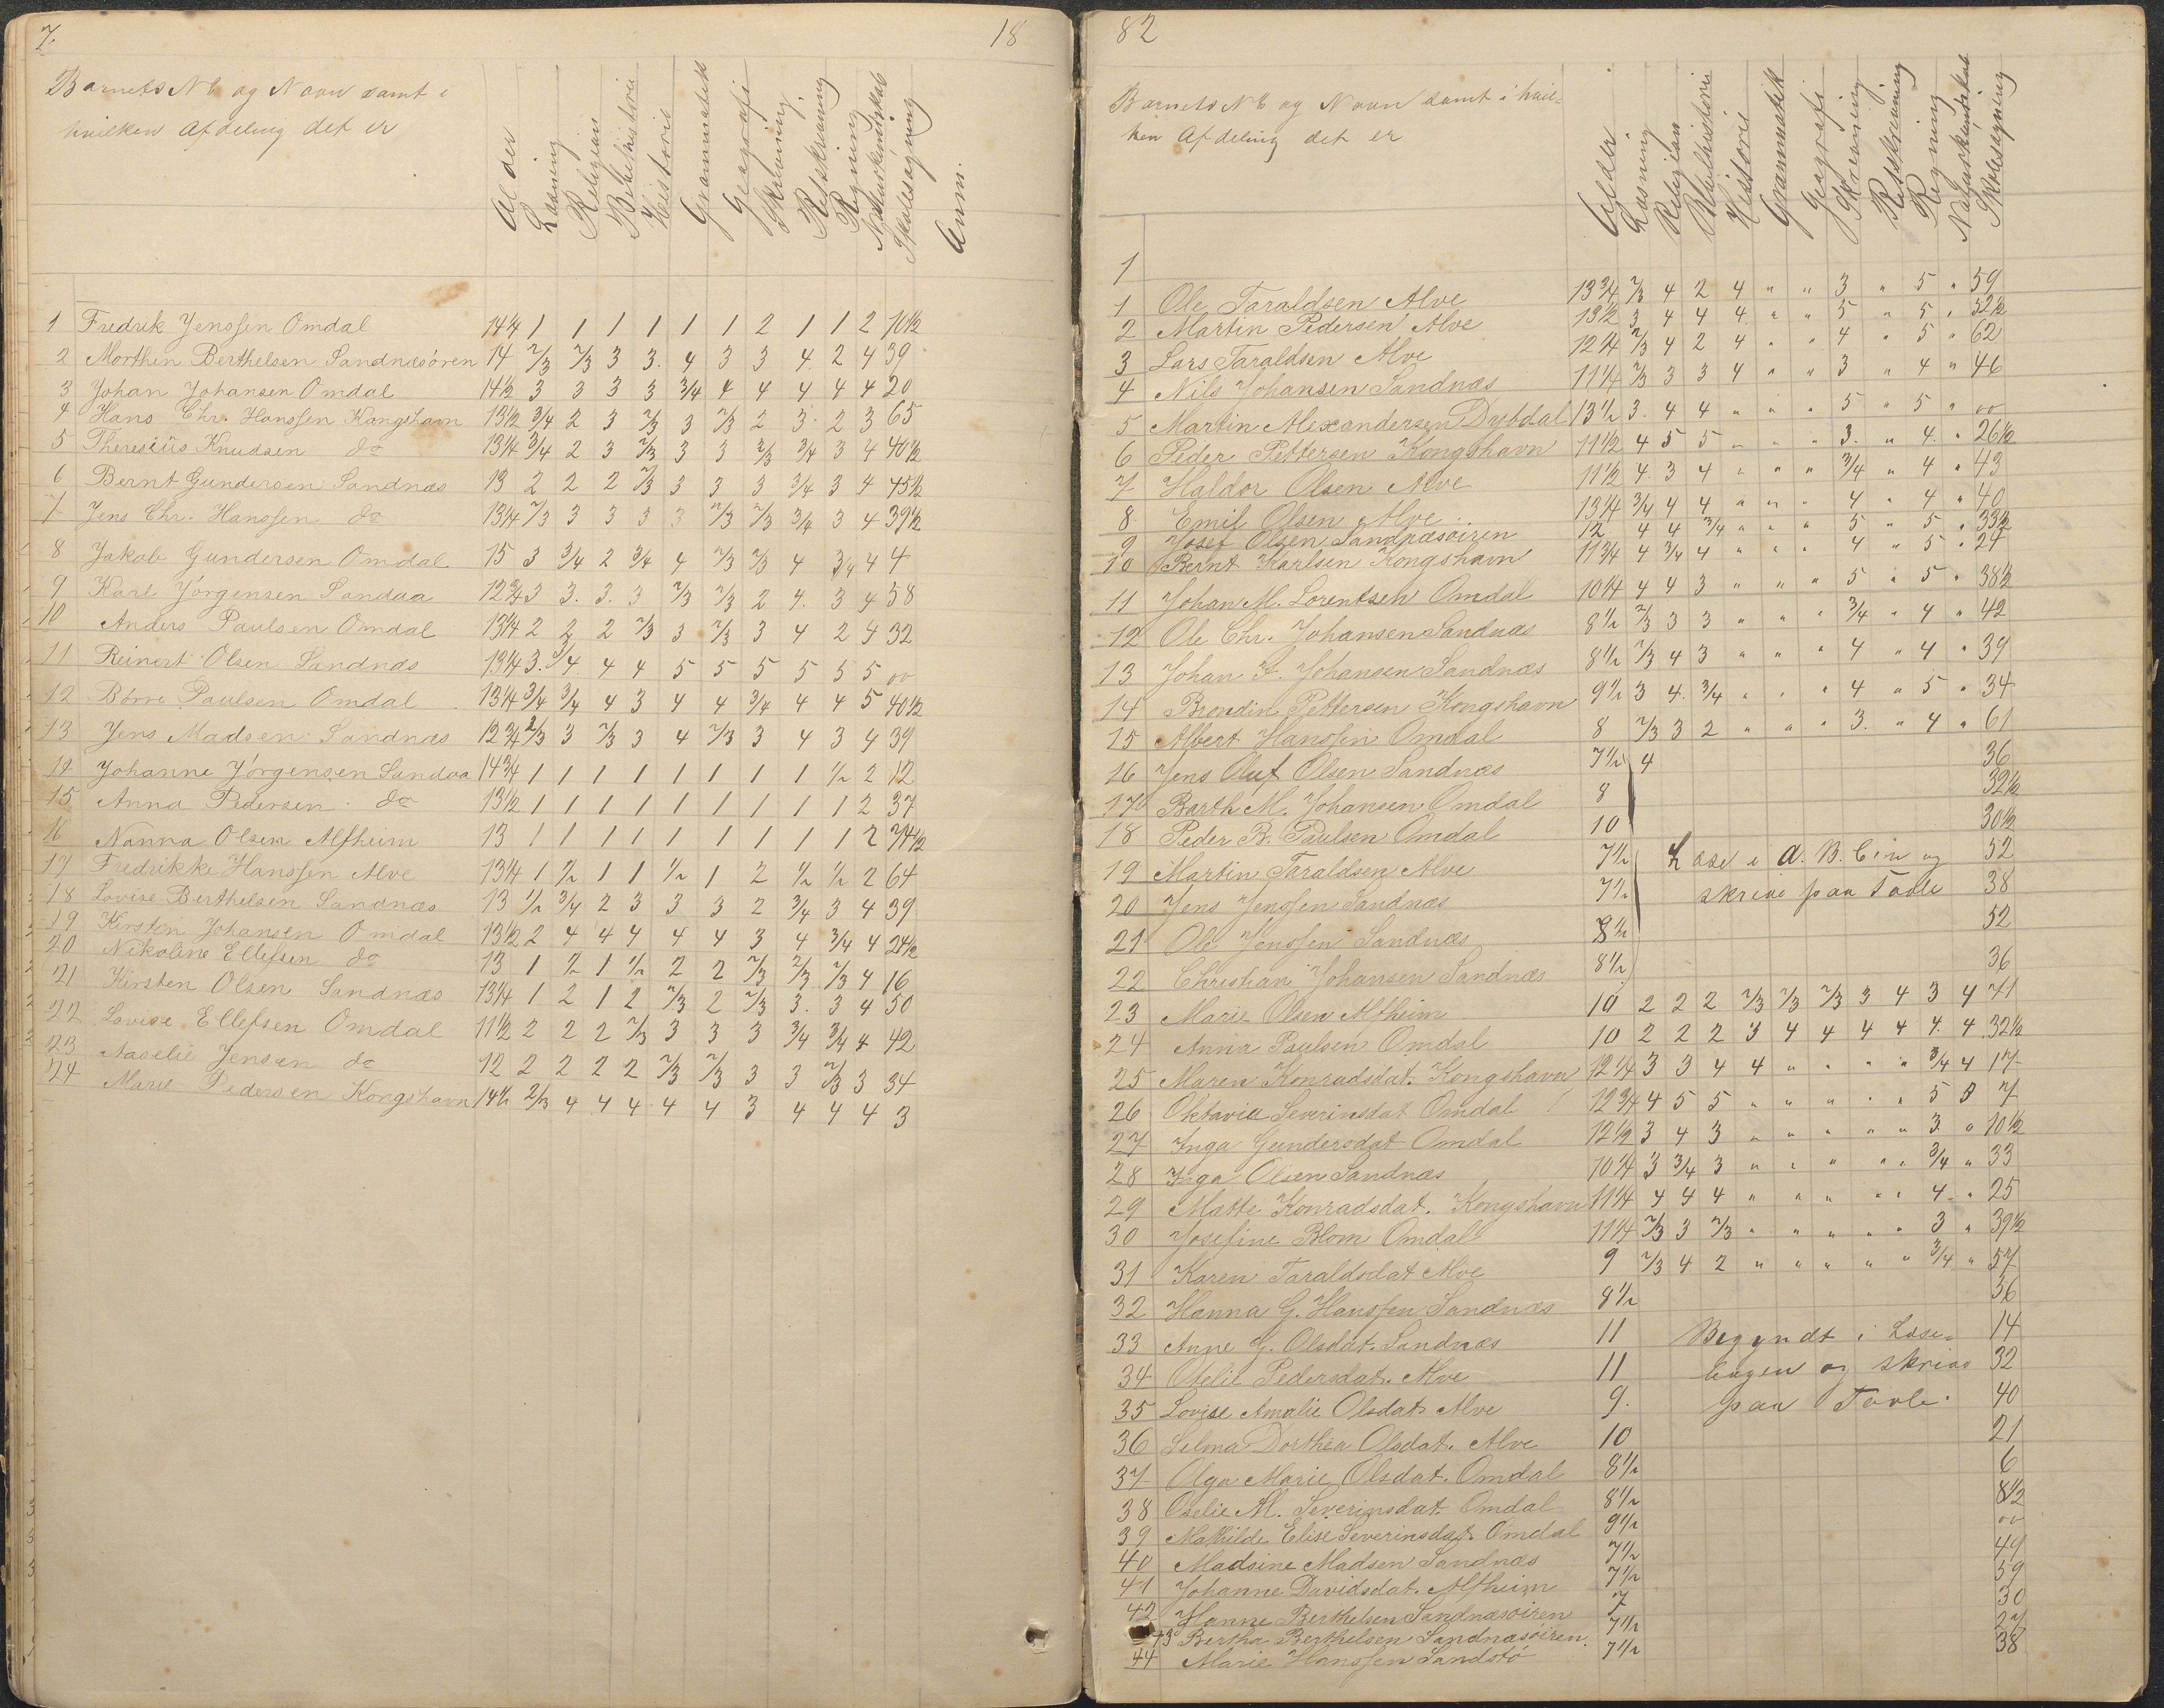 7.
18
Barnets No og Navn samt i
hvilken Afdeling det er
Alder
Læsning
Religion
Bibelhistorie
Historie
Grammatikk
Geografi
Skrivning.
Retskrivning
Regning
Naturkundskab
Skolesøgning
Anm.
1 Fredrik Jenssen Omdal 14¼ 1 1 1 1 1 1 2 1 1 2 10½
2 Morthen Berthelsen Sandnæsóren 14 2/3 2/3 3 3. 4 3 3 4. 2 4 39
3 Johan Johansen Omdal 14½ 3 3 3 3 3/4 4 4 4 4 4 20
4 Hans Chr. Hanssen Kongshavn 13½ 3/4 2 3 2/3 3 2/3 2 3. 2 3 65
5 Theresius Knudsen do 13¼ 3/4 2 3 2/3 3 3 2/3 3/4 3 4 40½
6 Bernt Gundersen Sandnæs 13 2 2 2 2/3 3 3 3 3/4 3 4 45½
7 Jens Chr. Hanssen do 13¼ 2/3 3 3 3 3 2/3 2/3 3/4 3 4 39½
8 Jakob Gundersen Omdal 15 3 3/4 2 3/4 4 2/3 2/3 4 3/4 4 4
9 Karl Jörgensen Sandaa 12¾ 3 3. 3. 3 2/3 2/3 2 4. 3 4 58
10 Anders Paulsen Omdal 13¼ 2 2 2 2/3 3 2/3 3 4 2 4 32
11 Reinert Olsen Sandnæs 13¼ 3. 3/4 4 4 5 5 5 5 5 5 00
12 Börre Paulsen Omdal 13¼ 3/4 3/4 4 3 4 4 3/4 4 4 5 40½
13 Jens Madsen Sandnæs 12¾ 2/3 3 2/3 3 4 2/3 3 4 3 4 39
14 Johanne Jörgensen Sandaa 14¾ 1 1 1 1 1 1 1 1 1/2 2 12
15 Anna Pedersen do 13½ 1 1 1 1 1 1 1 1 1 2 37
16 Nanna Olsen Alfheim 13 1 1 1 1 1 1 1 1 1 2 74½
17 Fredrikke Hanssen Alve 13¼ 1 1/2 1 1 1/2 1 2 1/2 1/2 2 64
18 Lovise Berthelsen Sandnæs 13 1/2 3/4 2 3 3 3 2 3/4 3 4 39
19 Kirsten Johansen Omdal 13½ 2 4 4 4 4 4 3 4 3/4 4 24½
20 Nikoline Ellefsen do 13 1 1/2 1 1/2 2 2 2/3 2/3 2/3 4 16
21 Kirsten Olsen Sandnæs 13¼ 1 2 1 2 2/3 2 2/3 3. 3 4 50
22 Lovise Ellefsen Omdal 11½ 2 2 2 2/3 3 3 3 3/4 3/4 4 42
23 Aaselie Jensen do 12 2 2 2 2 2/3 2/3 3 3 2/3 3 34
24 Marie Pedersen Kongshavn 14½ 2/3 4 4 4 4 4 3 4 4 4 3
82
Barnets No og Navn samt i hvil-
ken Afdeling det er
Alder
Læsning
Religion
Bibelhistorie
Historie
Grammatikk
Geografi
Skrivning
Retskrivning
Regning
Naturkundskab
Skolesøgning
1
1 Ole Taraldsen Alve 13¾ 2/3 4 2 4 " " 3 " 5 " 59
2 Martin Pedersen Alve 13½ 3 4 4 4 " " 5 " 5 " 52½
3 Lars Taraldsen Alve 12¼ 2/3 4 2 4 " " 4 " 5 " 62
4 Nils Johansen Sandnæs 11¼ 2/3 3 3 4 " " 3 " 4 " 46
5 Martin Alexandersen Dybdal 13½ 3. 4 4 " " " 5 " 5 " 00
6 Peder Pettersen Kongshavn 11½ 4 5 5 " " " 3. " 4. " 26½
7 Haldor Olsen Alve 11½ 4. 3 4 " " " 3/4 " 4 " 43
8 Emil Olsen Alve 13¼ 3/4 4 4 " " " 4 " 4 " 40
9 Josef Olsen Sandnæsöiren 12 4 4 3/4 " " " 5 " 5 " 33½
10 Bernt Karlsen Kongshavn 11¾ 4 3/4 4 " " " 4 " 5 " 27
11 Johan M. Lorentsen Omdal 10¼ 4 4 3 " " " 5 " 5 " 38½
12 Ole Chr. Johansen Sandnæs 8½ 2/3 3 3 " " " 3/4 " 4 " 42
13 Johan F. Johansen Sandnæs 8½ 2/3 4 3 " " " 4 " 4 " 39
14 Brondin Pettersen Kongshavn 9½ 3 4. 3/4 " " " 4 " 5 " 34
15 Albert Hanssen Omdal 8 2/3 3 2 " " " 3. " 4 " 61
16 Jens Oluf Olsen Sandnæs 7½ 4 36
17 Barth M. Johansen Omdal 8 32½
18 Peder B. Paulsen Omdal 10 30½
19 Martin Taraldsen Alve 7½ Læse i A. B. Cin og 52
20 Jens Jenssen Sandnæs 7½ skrive paa Tavle 38
21 Ole Jenssen Sandnæs 8½ 52
22 Christian Johansen Sandnæs 8½ 36
23 Marie Olsen Alfheim 10 2 2 2 2/3 2/3 2/3 3 4 3 4 71
24 Anna Paulsen Omdal 10 2 2 2 3 4 4 4 4 4. 4 32½
25 Maren Konradsdat. Kongshavn 12¼ 3 3 4 4 " " " " 3/4 4 17
26 Oktavia Severinsdat Omdal 12¾ 4 5 5 " " " " " 5 0 7
27 Inga Gundersdat Omdal 12½ 3 4 3 " " " " " 3 " 10½
28 Inga Olsen Sandnæs 10¼ 3 3/4 3 " " " " " 3/4 " 33
29 Mætte Konradsdat. Kongshavn 11¼ 4 4 4 " " " " " 4 " 25
30 Josefine Blom Omdal 11¼ 2/3 3 2/3 " " " " " 3 " 39½
31 Karen Taraldsdat Alve 9 2/3 4 2 " " " " " 3/4 " 57
32 Hanna G. Hanssen Sandnæs 8½ 36
33 Anne G. Olsdat. Sandnæs 11 Begyndt i Læse- 14
34 Otelie Pedersdat. Alve 11 bogen og skrive 32
35 Lovise Amalie Olsdat. Alve 9. paa Tavle. 40
36 Selma Dorthea Olsdat. Alve 10 21
37 Olga Marie Olsdat. Omdal 8½ 6
38 Oselie M. Severinsdat. Omdal 8½ 8½
39 Mathilde Elise Severinsdat. Omdal 9½ 00
40 Madsine Madsen Sandnæs 7½ 49
41 Johanne Davidsdat. Alfheim 7½ 59
42 Hanne Berthelsen Sandnæsöiren 7 30
43 Bertha Berthelsen Sandnæsöiren. 7½ 27
44 Marie Hanssen Sandstö 7½ 38